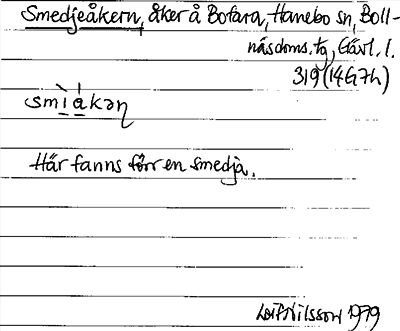 Smedjeåkern, åker å Bofara, Hanebo sn, Boll-
näs doms. tg, Gävl. l.
319 (14G7h)
smìákəɳ
Här fanns förr en smedja.
Leif Nilsson 1979